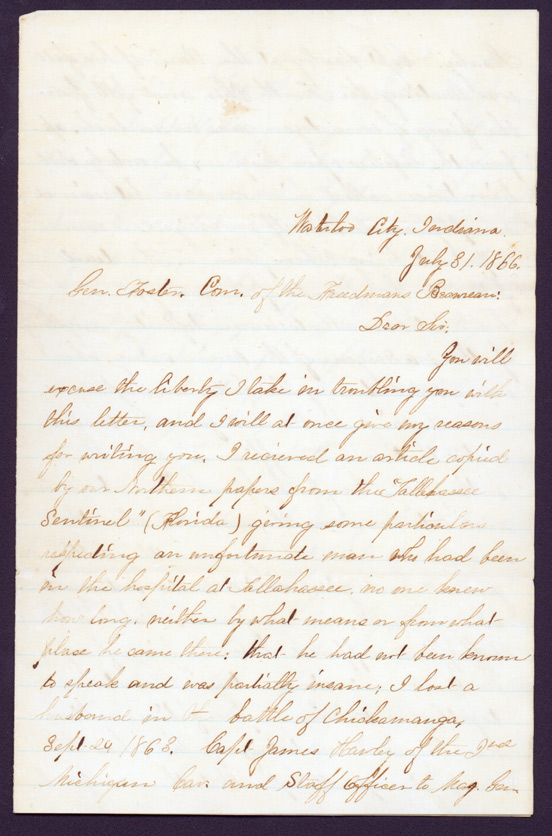 Waterloo City. Indiana.
July 31. 1866.
Gen. Foster. Com. of the Freedmans Beaureau:
Dear Sir:
You will
excuse the liberty I take in troubling you with
this letter, and I will at once give my reasons
for writing you. I recieved an article copied
by our Northern papers from the "Tallahassee
Sentinel" (Florida) giving some particulars
respecting an unfortunate man who had been
in the hospital at Tallahassee, no one knew
how long. neither by what means or from what
place he came there: that he had not been known
to speak and was partially insane; I lost a
husband in th battle of Chickamauga,
Sept. 24, 1863. Capt James Hawley of the 2nd
Michigan Cav. and Staff Officer to Maj. Gen